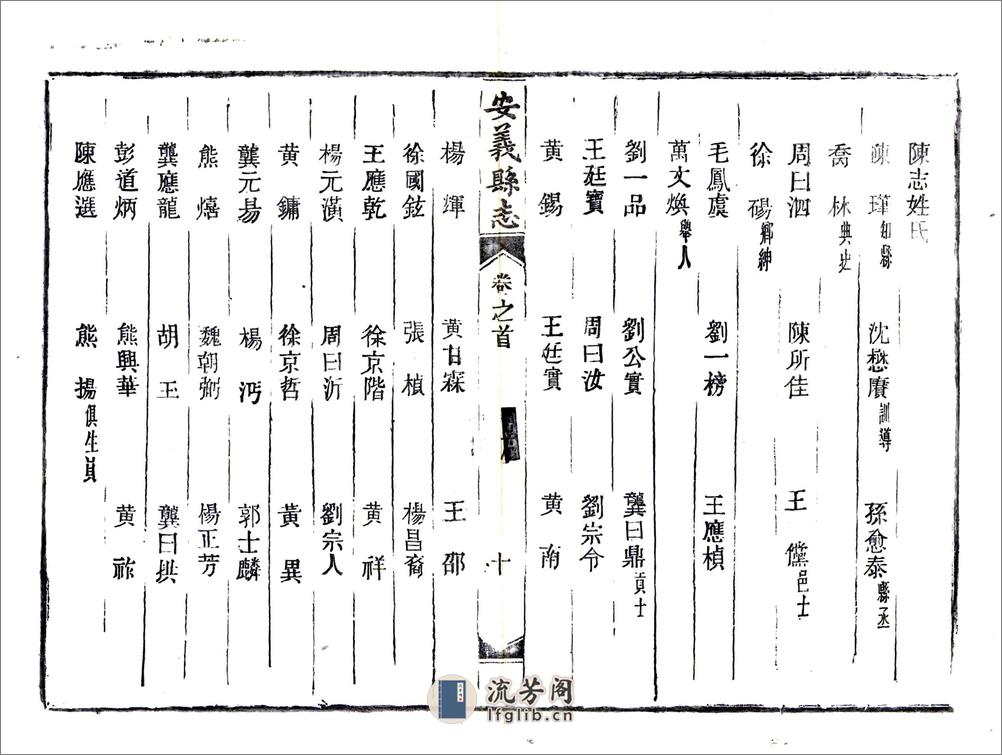 陳志姓氏
陳瑾知縣 沈懋賡訓導 孫愈泰縣丞
喬林典史
周曰泗 陳所佳 王儻邑士
徐碭鄉紳
毛鳳虞 劉一榜 王應楨
萬文煥舉人
劉一品 劉公實 龔曰鼎貢士
王廷賓 周曰汝 劉宗令
黄錫 王廷實 黄南
安義縣志 卷之首 十
楊煇 黄甘霖 王邵
徐國鉉 張楨 楊昌裔
王應乾 徐京階 黄祥
楊元潢 周曰沂 劉宗人
黄鏞 徐京哲 黃異
龔元昜 楊沔 郭士麟
熊熺 魏朝弼 楊正芳
龔應龍 胡王 龔曰拱
彭道炳 熊興華 黄祚
陳應選 熊揚俱生員
流芳阁
lfglib.cn